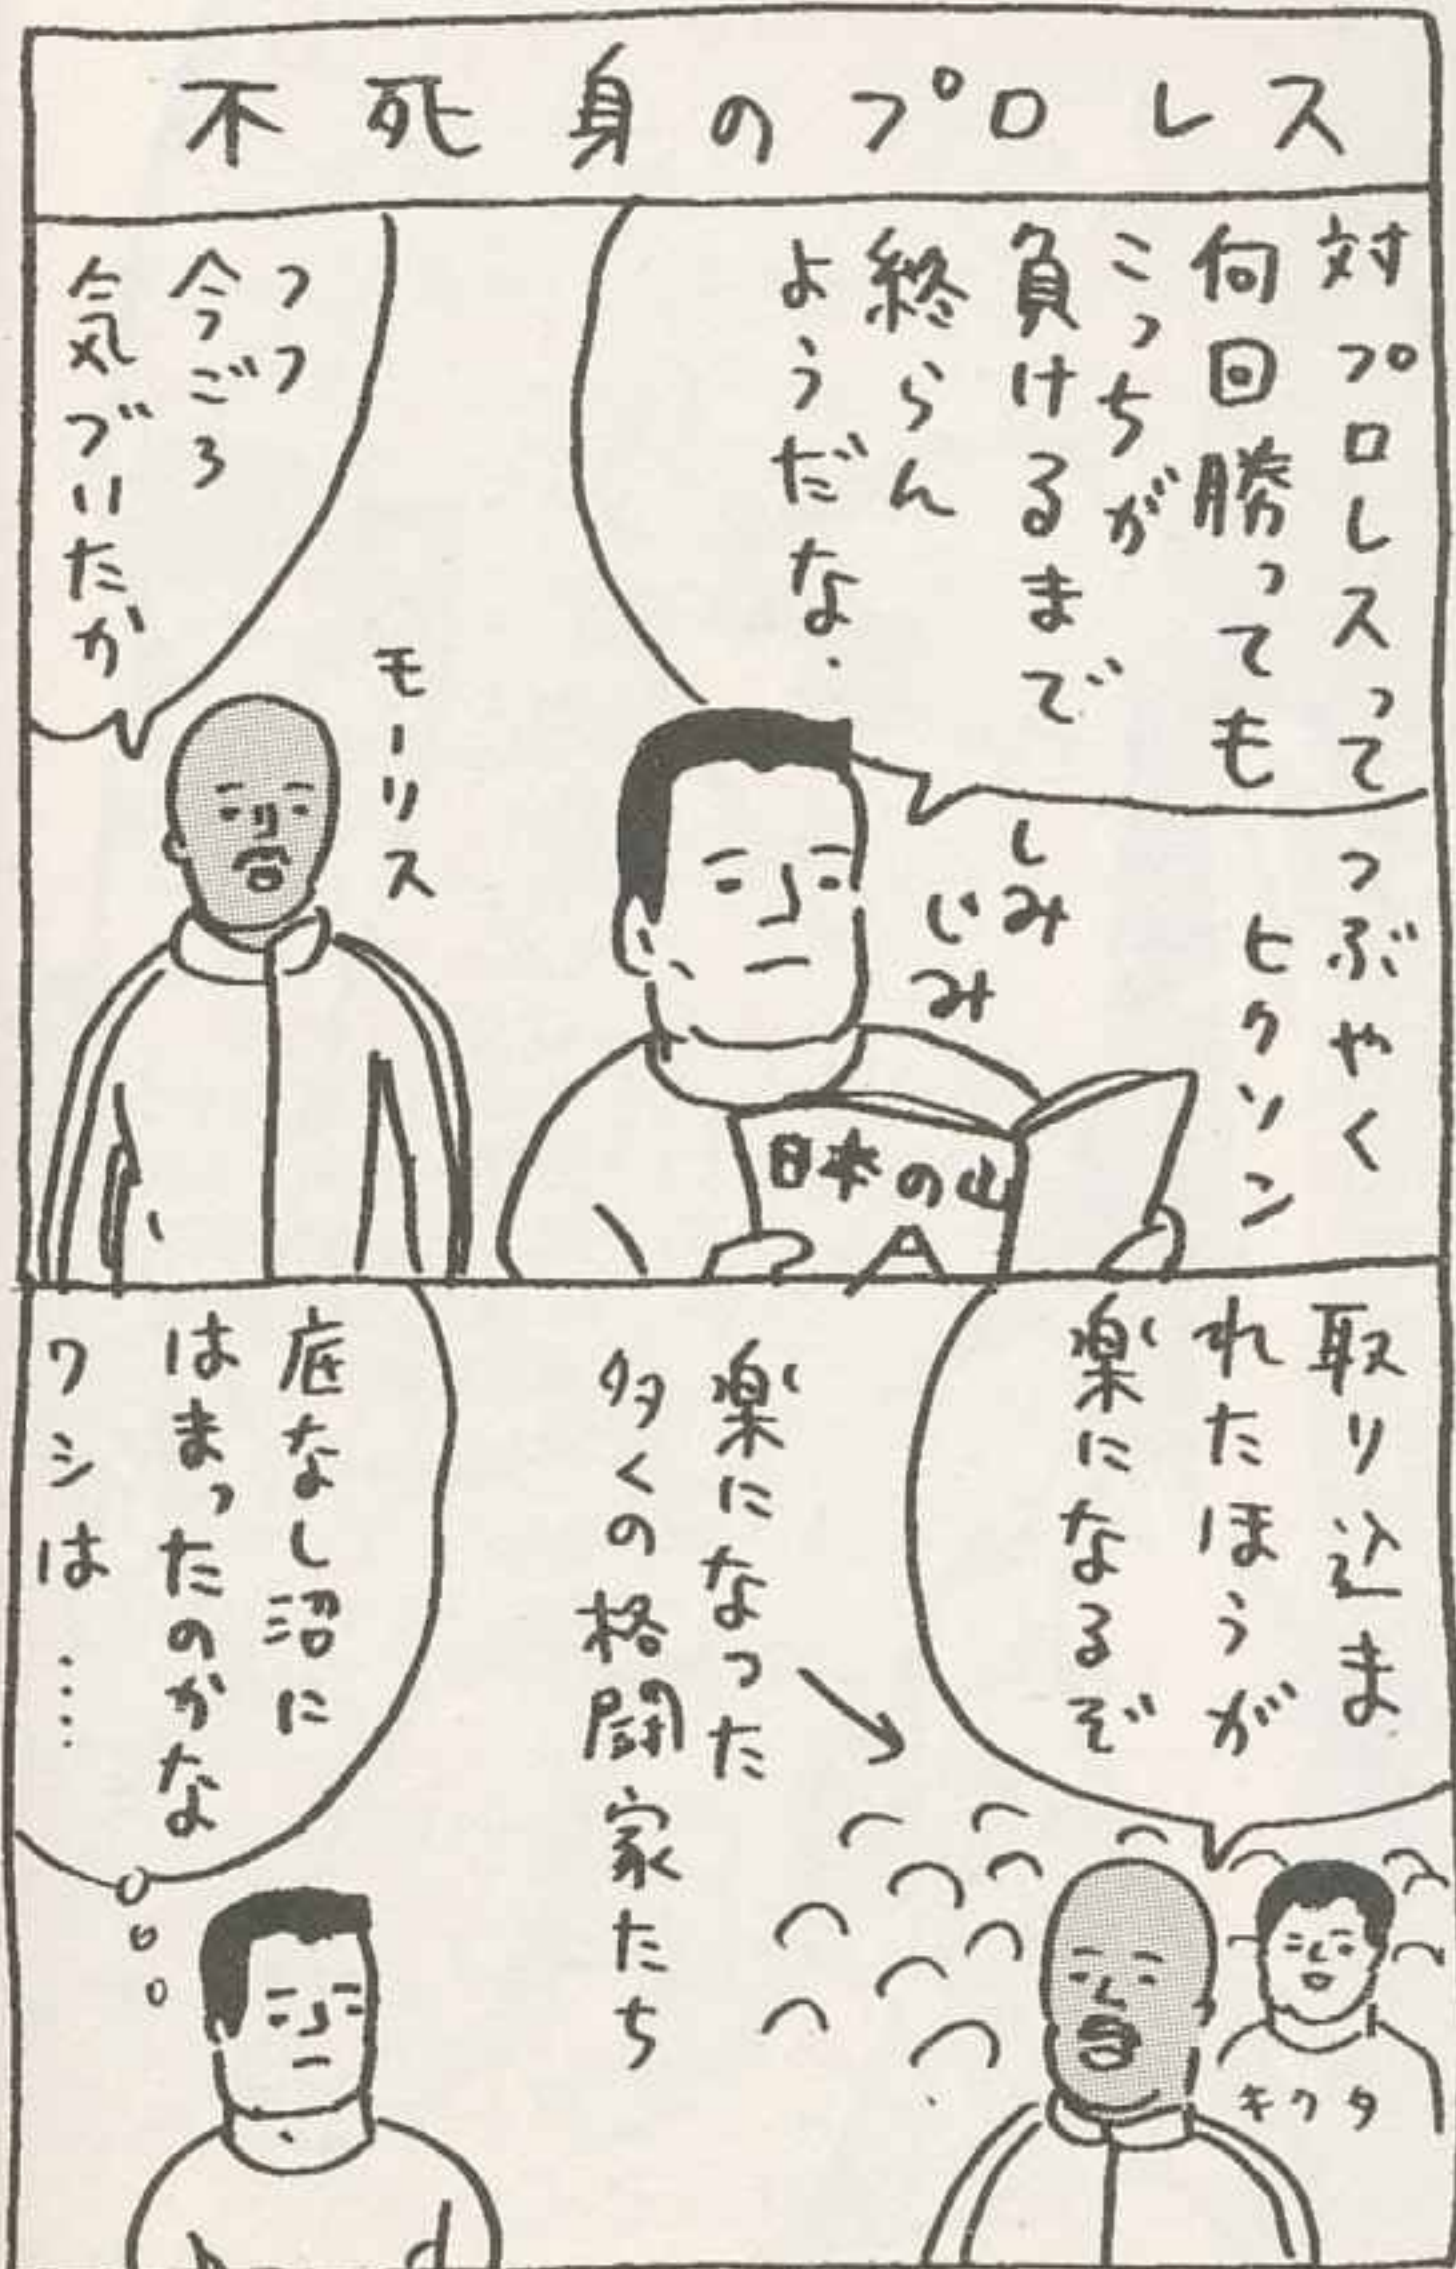 不死身のプロレス
対プロレスって
何回勝っても
こっちが
負けるまで
終らん
ようだな.
つぶやく
ヒクソン
しみ
じみ
日本の山
フフ
今ごろ
気づいたか
モーリス
取り込ま
れたほうが
楽になるぞ
キクタ
楽になった
多くの格闘家たち
底なし沼に
はまったのかな
ワシは……